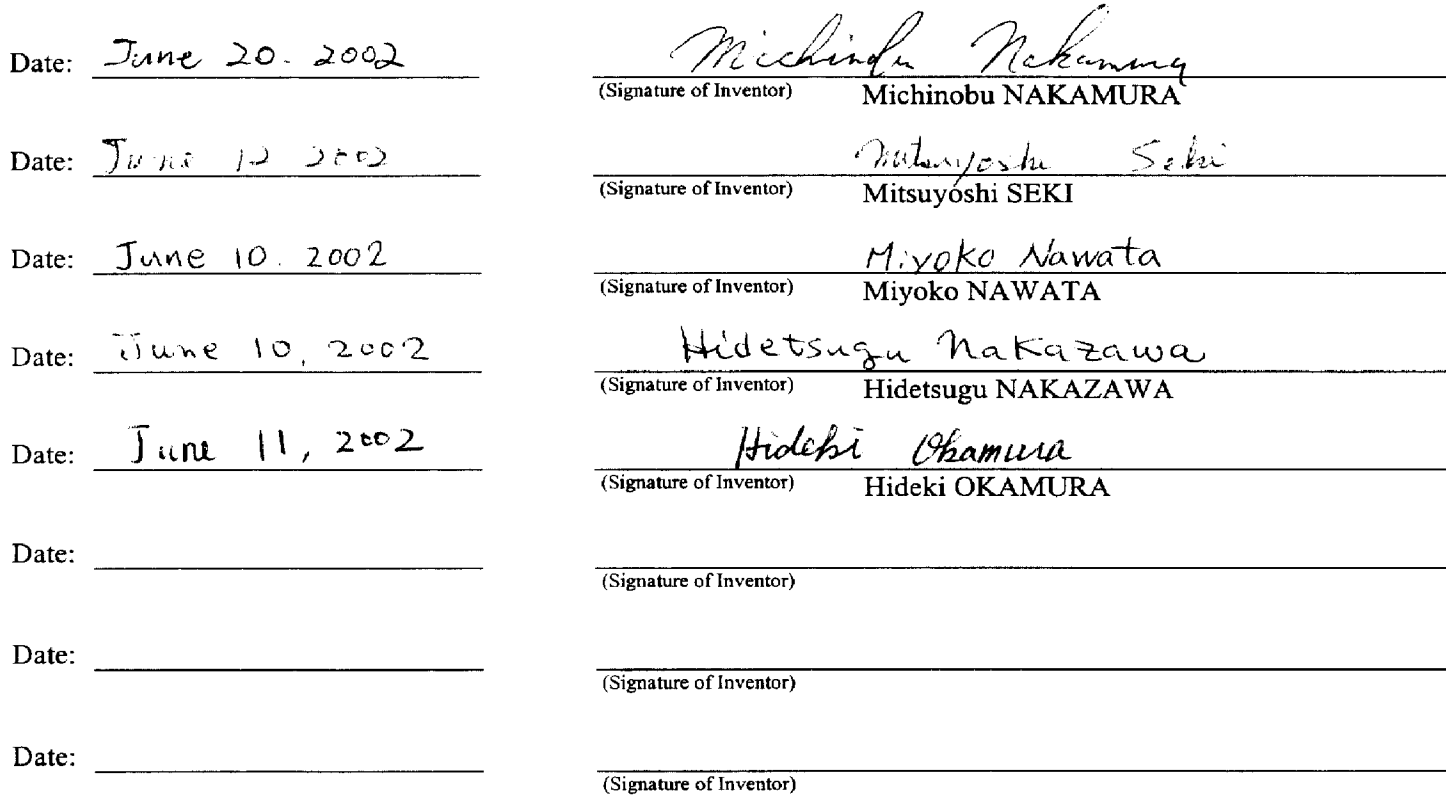 Date: June 20. 2002 Michinobu Nakamura
(Signature of Inventor) Michinobu NAKAMURA
Date: June 12 2002 Mitsuyoshi Seki
(Signature of Inventor) Mitsuyoshi SEKI
Date: June 10. 2002 Miyoko Nawata
(Signature of Inventor) Miyoko NAWATA
Date: June 10, 2002 Hidetsugu Nakazawa
(Signature of Inventor) Hidetsugu NAKAZAWA
Date: June 11, 2002 Hideki Okamura
(Signature of Inventor) Hideki OKAMURA
Date:
(Signature of Inventor)
Date:
(Signature of Inventor)
Date:
(Signature of Inventor)